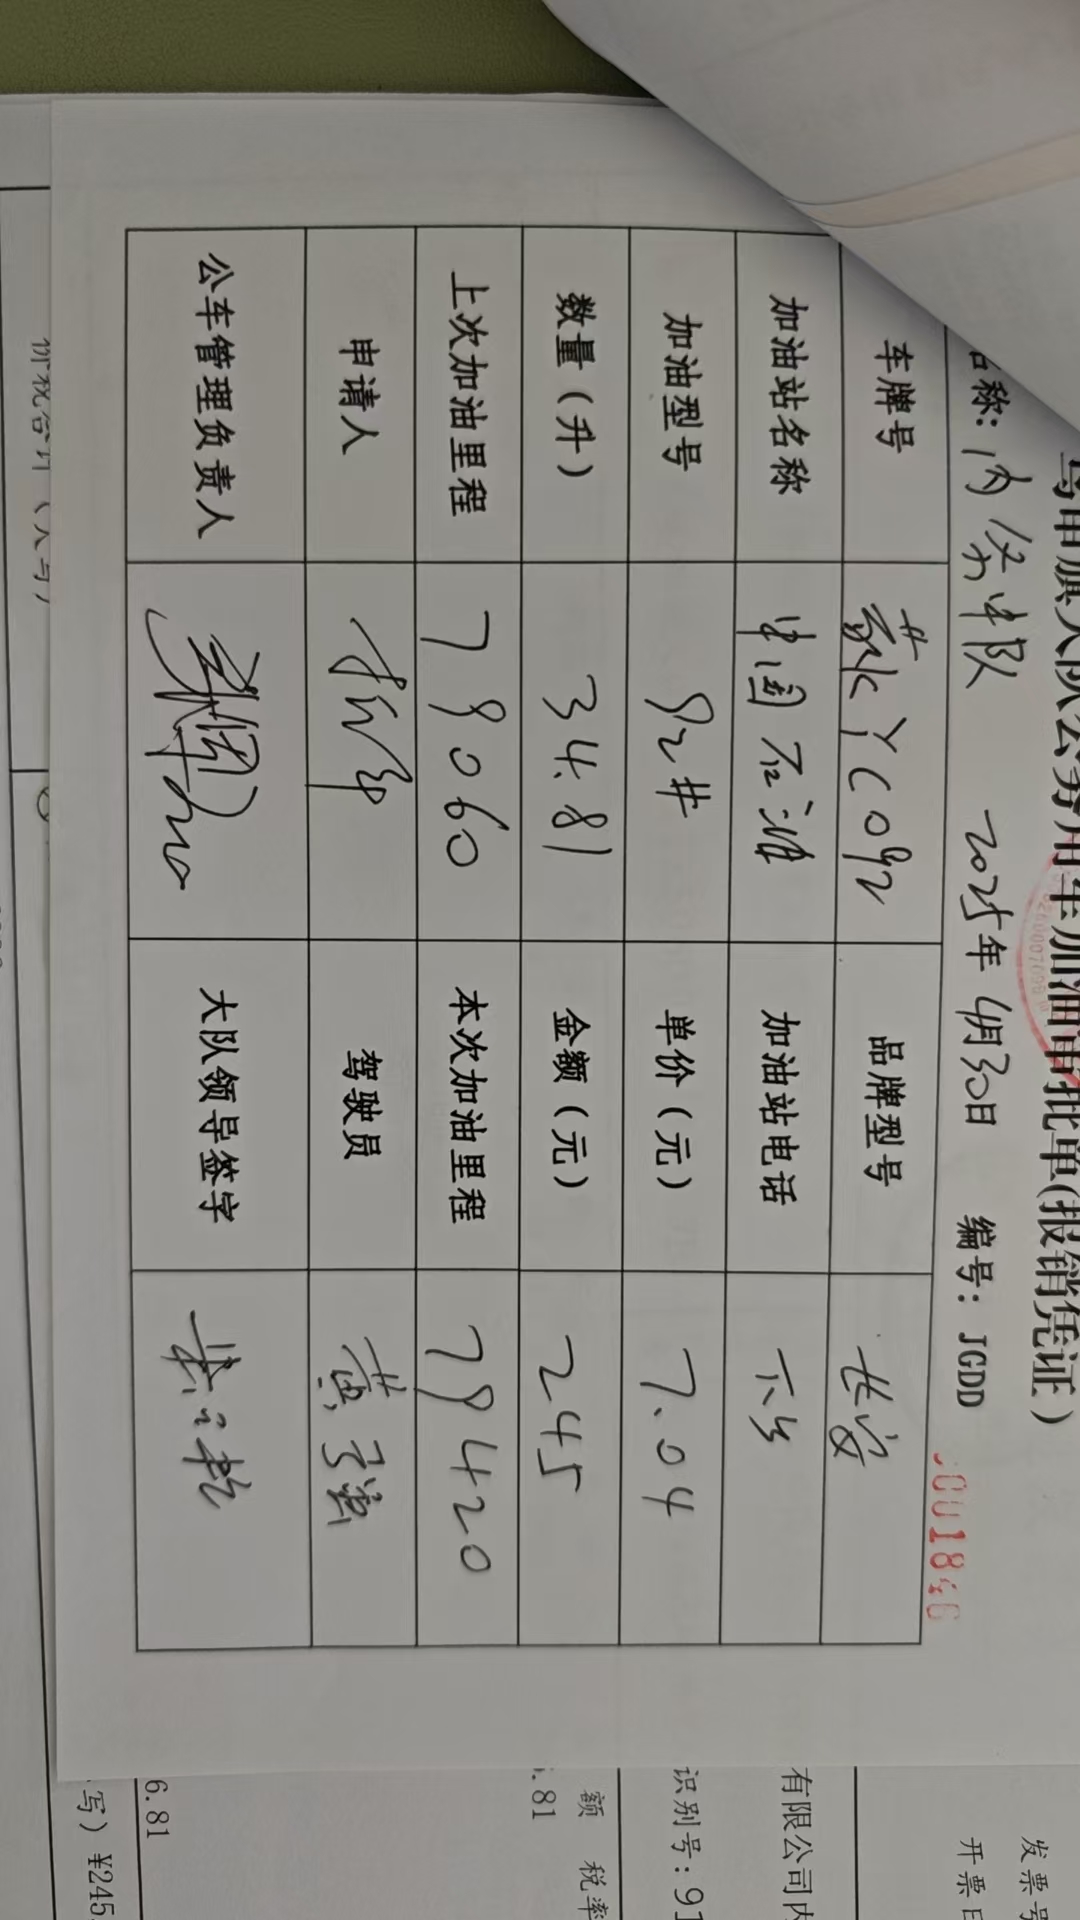 乌审旗大队公务用车加油审批单(报销凭证)
名称: 内务中队 2025年 4月30日 编号: JGDD
车牌号 蒙KYC092 品牌型号 长安
加油站名称 中国石油 加油站电话
加油型号 92# 单价(元) 7.04
数量(升) 34.81 金额(元) 245
上次加油里程 79060 本次加油里程 79420
申请人 驾驶员
公车管理负责人 大队领导签字
价税合计(大写)
发票号
开票日
有限公司内
识别号: 91
额 税率
.81
6.81
写) ¥245.